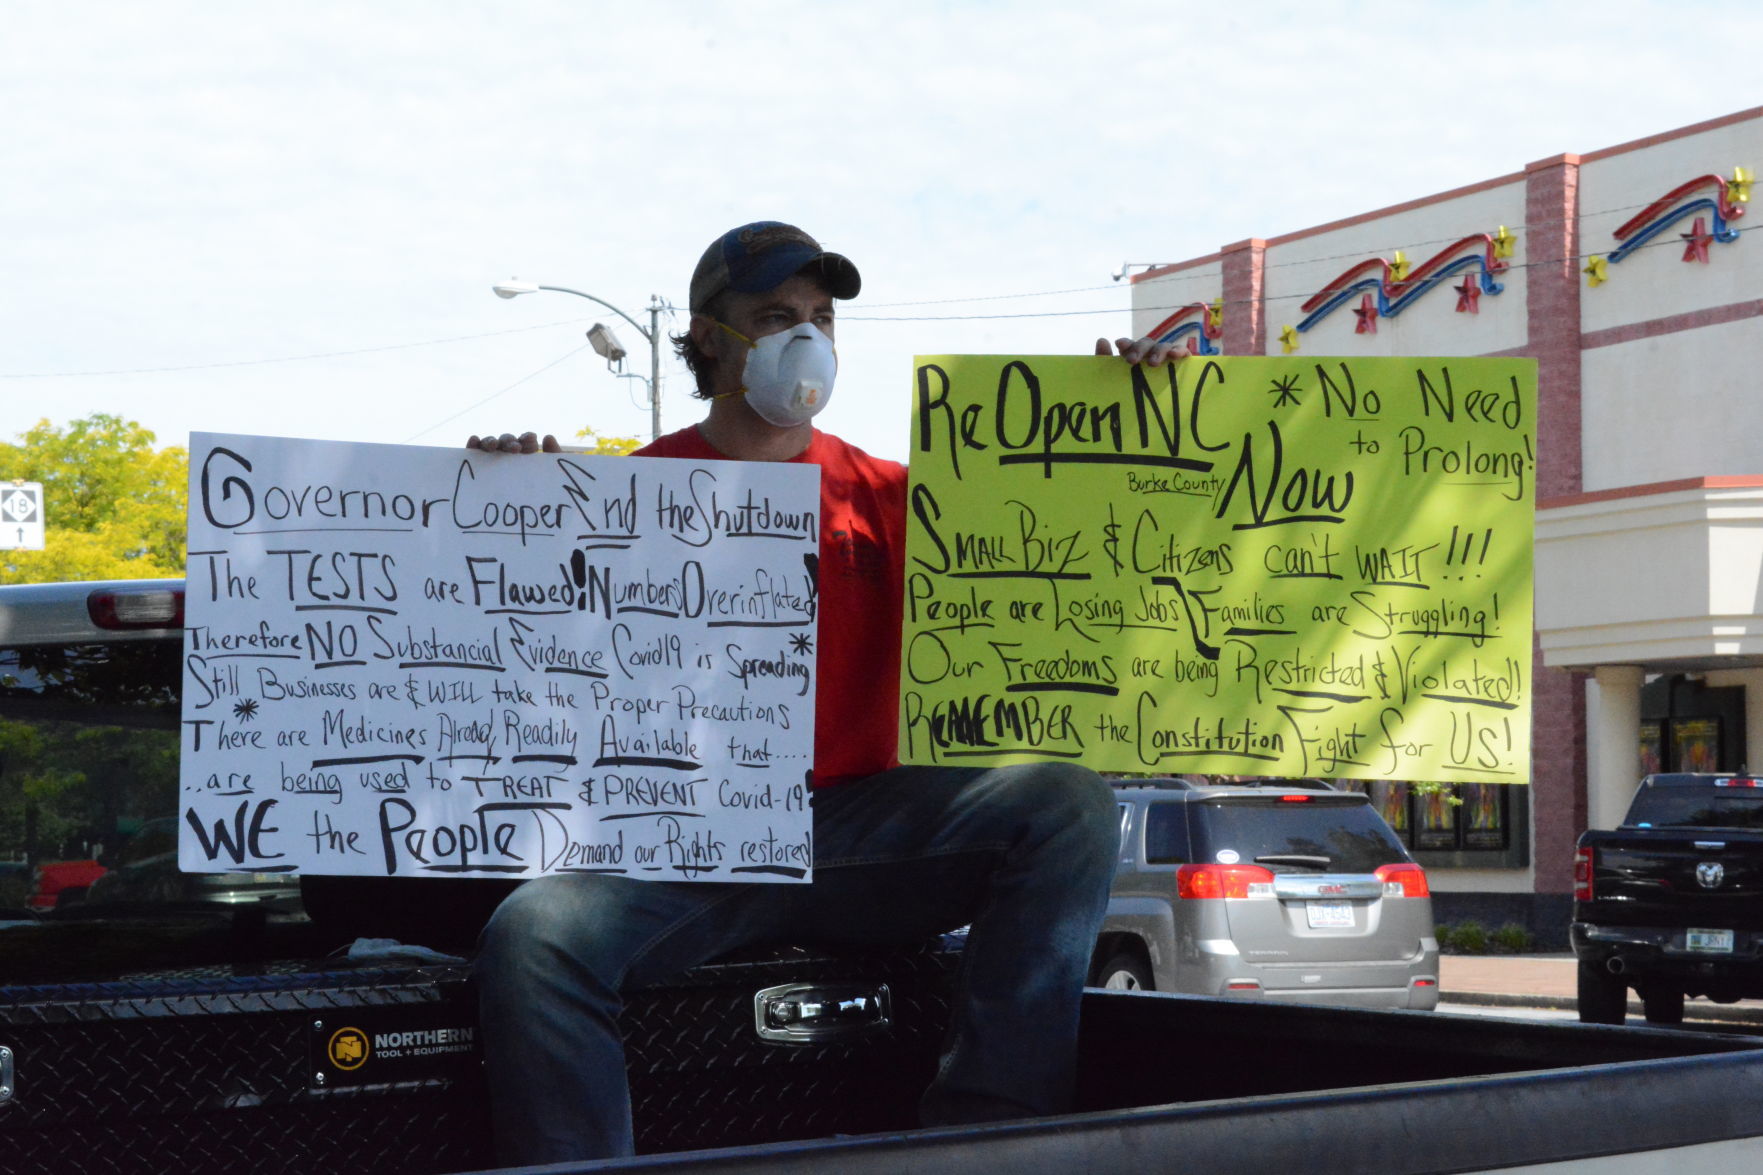 Governor Cooper End the Shutdown
The TESTS are Flawed! Numbers Overinflated!
Therefore NO Substancial Evidence Covid19 is Spreading *
Still Businesses are & WILL take the Proper Precautions
* There are Medicines Alread, Readily Available that....
..are being used to TREAT & PREVENT Covid-19!
WE the People Demand our Rights restored
ReOpen NC * No Need
to Prolong!
Burke County Now
Small Biz & Citizens can't WAIT!!!
People are Losing Jobs Families are Struggling!
Our Freedoms are being Restricted & Violated!
REMEMBER the Constitution Fight for US!
18
NORTHERN
TOOL + EQUIPMENT
GMC